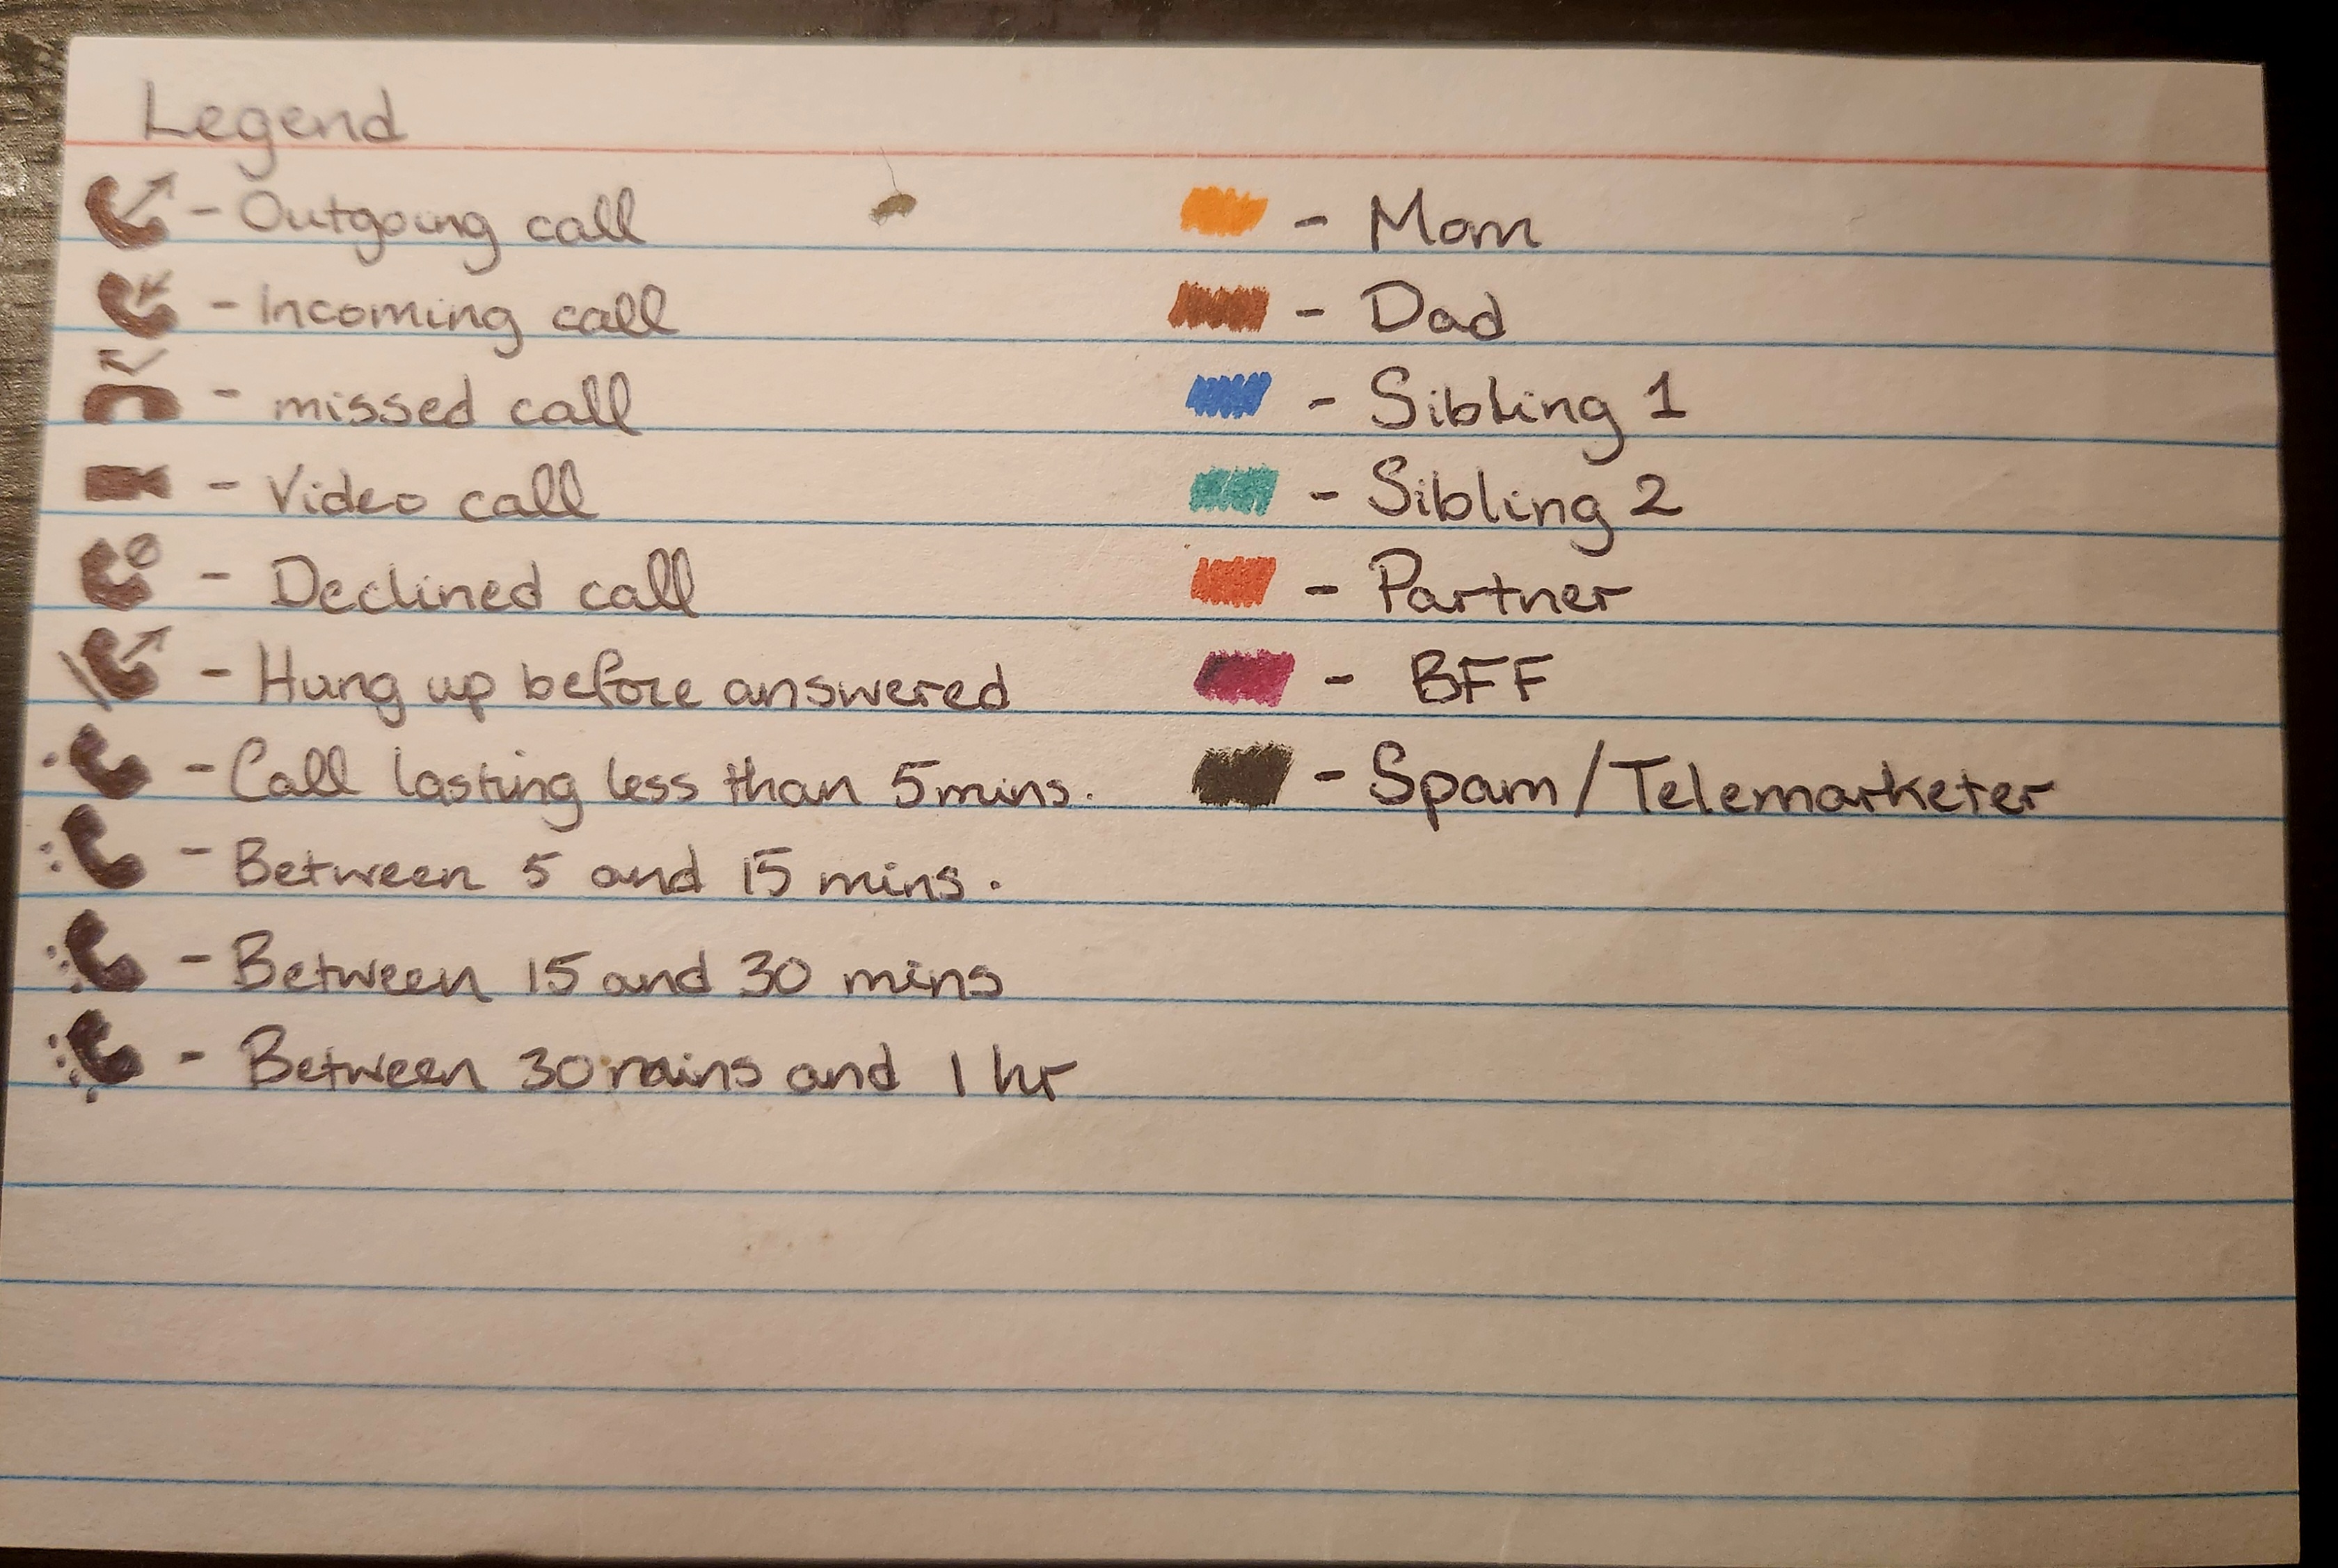 Legend
- Outgoing call
- Incoming call
- missed call
- Video call
- Declined call
- Hung up before answered
- Call lasting less than 5mins.
- Between 5 and 15 mins.
- Between 15 and 30 mins
- Between 30 mins and 1 hr
- Mom
- Dad
- Sibling 1
- Sibling 2
- Partner
- BFF
- Spam/Telemarketer